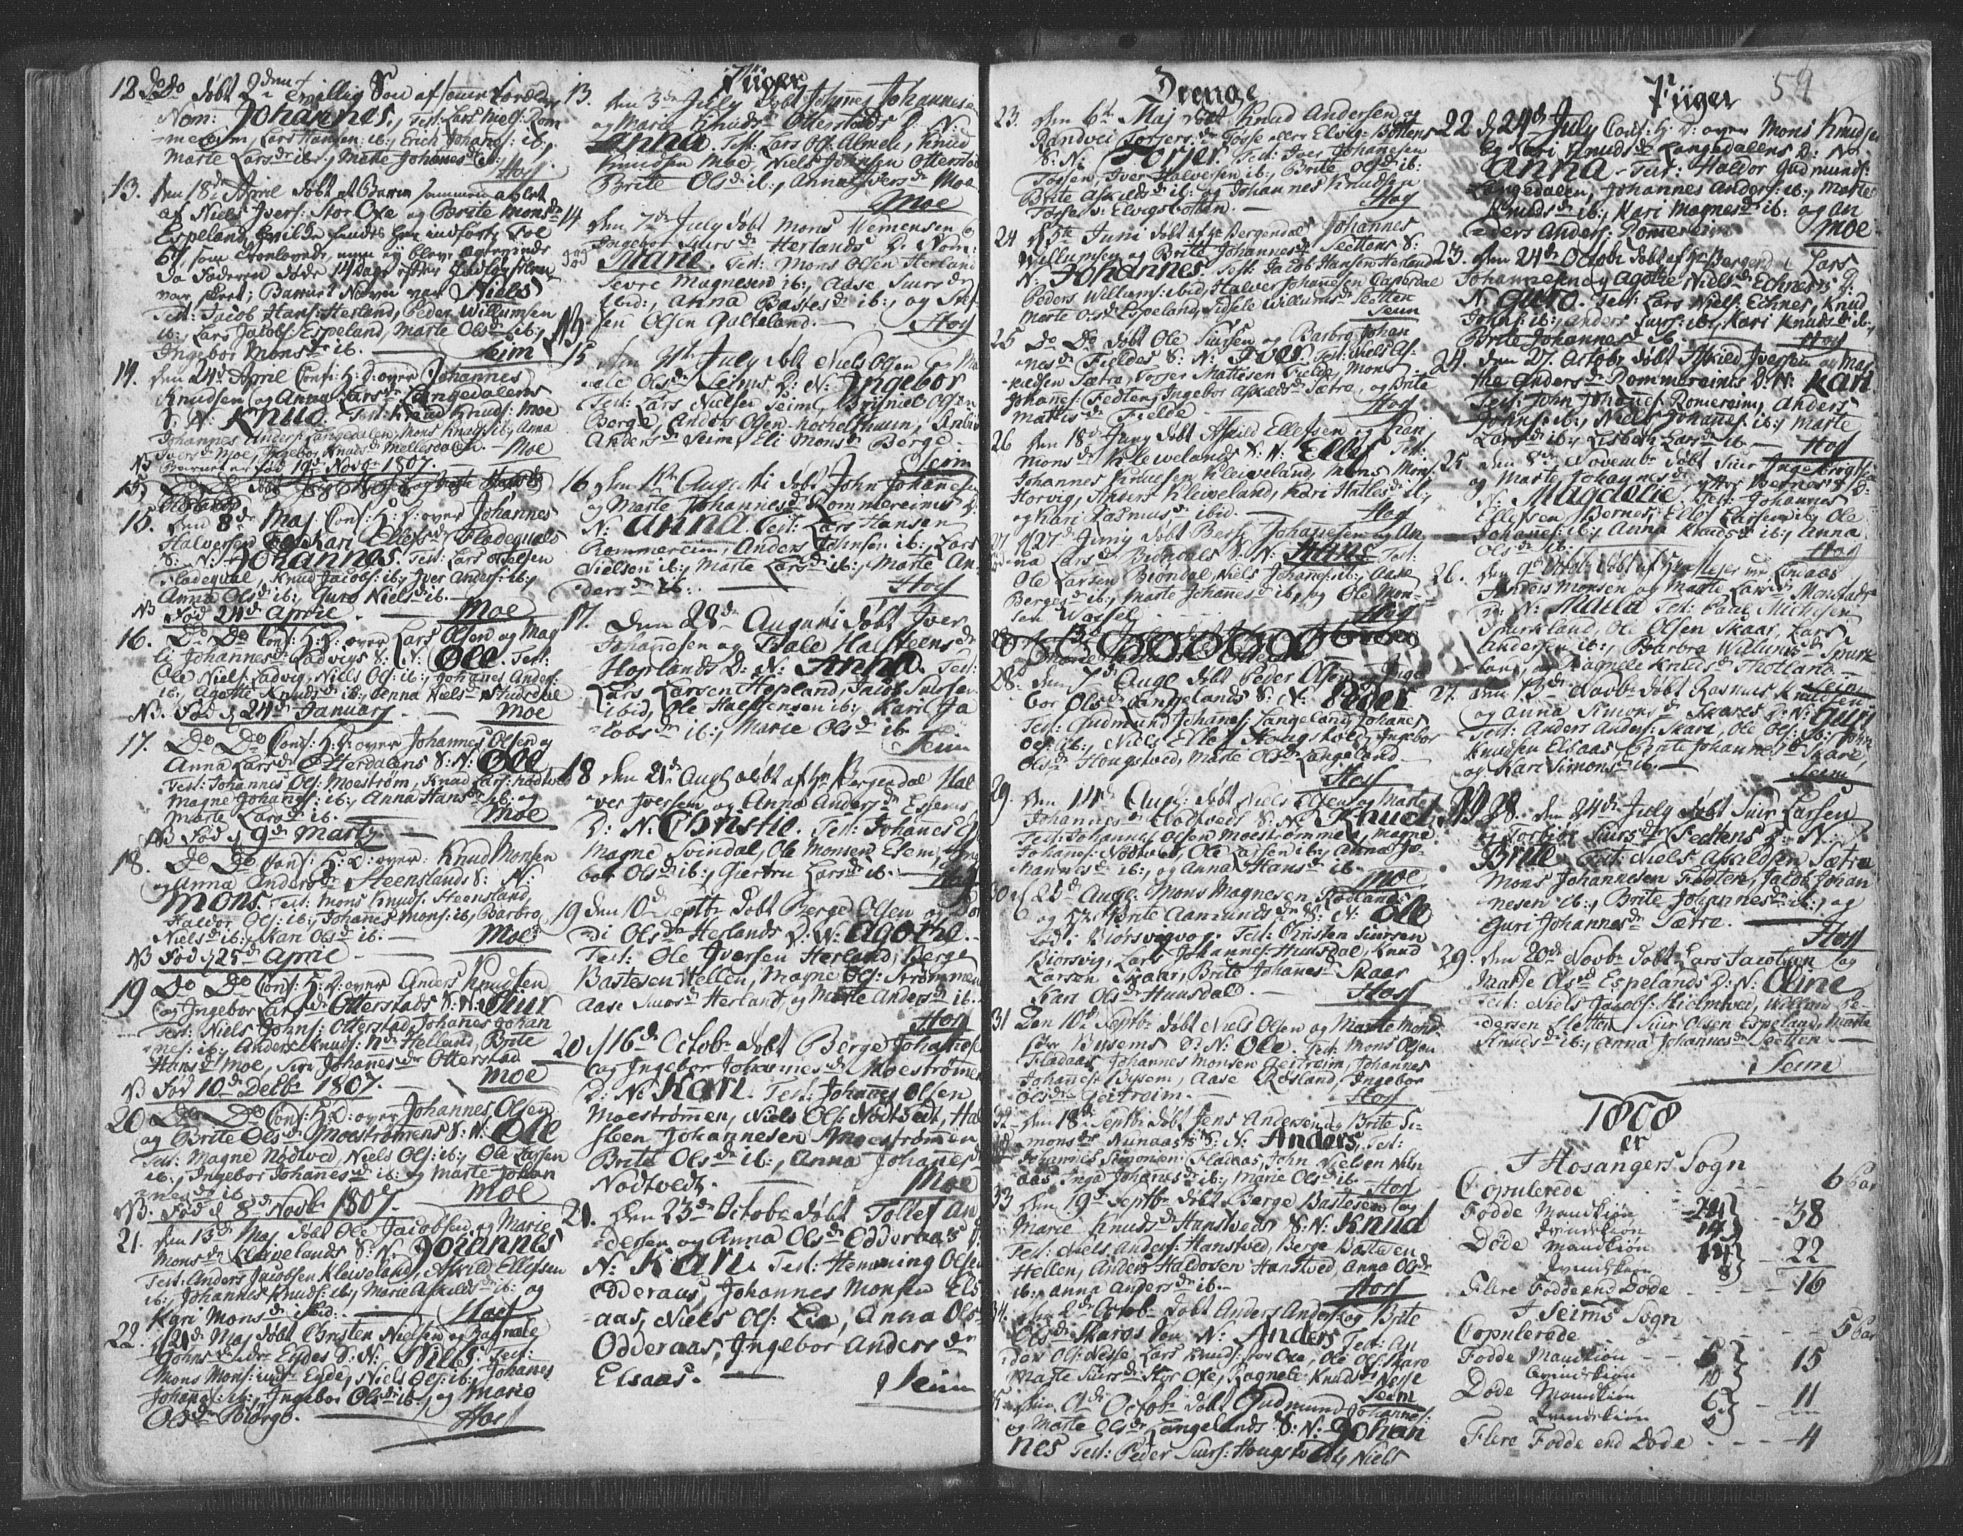 12. do do døbt 2den
Nom: Johannes, Test: Lars
Marte Larsdr ib:, Marte Johanesdr ib:,
Hosf
13. den 18de April døbt et Barn sammen avlet
af Niels Ivers: Stor Oxe og Brite Monsdr
Espeland,
da Faderen døde 14 Dage efter
Barnet Navn var Niels
Test: Jacob Hans: Herland, Peder Willumsen
ib:, Lars Jacobs: Espeland, Marte Olsdr ib:,
Ingebor Monsdr ib. Seim
14. den 24de April Conf: H: D: over Johannes
Knudsen og Anna Larsdr Langedalens
S: N: Knud Test: Knud Knuds: Moe
Johannes Anders: Langedalen, Mons Knuds: ib:, Anna
Iversdr Moe, Ingebor Knudsdr Mellesdalen. Moe
NB Barnet er fød 19de Novbr 1807.
15. den 8de Maj Conf: H: D: over Johannes
Halversen og Kari Ellefsdr Fladequals
S: N: Johannes. Test: Lars Nielsen
Fladequal, Knud Jacobs: ib:, Iver Anders: ib:,
Anna Olsdr ib:, Guro Nielsdr ib.
NB Fød 24de Aprile. Moe
16. Do Do Conf: H: D: over Lars Olsen og Mag
li Johannesdr Ladvigs S: N: Ole. Test:
Ole Nielsen Ladvig, Niels Ols: ib:, Johanes Anders:
ib:, Agathe Knudsdr ib:, Anna Nielsdr
NB. Fød d 24de January. Moe
17. Do Do Conf: H: D: over Johannes Olsen og
Anna Larsdr Otterdalens S: N: Ole,
Test: Johannes Ols: Moestrøm, Knud Lars: Nodtved
Magne Johanes: ib:, Anna Hansdr ib:, og
Marte Larsdr ib. Moe
NB Fød d 9de Marty
18. Do Do Conf: H: D: over Knud Monsen
og Anna Andersdr Steenslands S: N:
Mons Test: Mons Knuds: Steensland,
Haldor Ols: ib:, Johanes Mons: ib:, Barbro
Nielsdr ib:, Kari Olsdr ib. Moe
NB Fød d 25de April
19 Do Do Conf: H: D: over Anders Knudsen
og Ingebor Larsdr Otterstads S: N: Siur
Test: Niels Johns: Otterstad, Johanes Johan
nes: ib:, Anders Knuds: Helland, Brite
Hansdr Moe, Siri Johannesdr Otterstad
NB Fød 10de Decbr 1807. Moe
20 Do Do Conf: H: D: over Johannes Olsen
og Brite Olsdr Moestrømens S: N: Ole
Test: Magne Nodtved, Niels Ols: ib:, Ole Larsen
ib:, Ingebor Johanesdr ib: og Marte Johan
nesdr ib. Moe
NB. Fød d 8de Novbr 1807.
21. den 13de Maj døbt Ole Jacobsen og Marie
Monsdr Kleivelands S: N: Johannes
Test: Anders Jacobsen Kleiveland, Askild Ellefsen
ib:, Johannes Knuds: ib:, Marie Askildsdr ib: og
Kari Monsdr ibid: Hosf
22. d 21de Maj døbt Christen Nielsen og Ragnale
Johnsdr Eydes S: N: Niels. Test:
Mons Mons: Eyde, Niels Ols: ib:, Johanes
Johanes: ib:, Ingebor Olsdr ib:, og Marie
Olsdr Biørge. Hosf
Piiger
13. den 3de July døbt Johannes Johannes:
og Marie Knudsdr Otterstads D: N:
Anna Test: Lars Ols: Almele, Knud
Knudsen Moe, Niels Johnsen Otterstad
Brite Olsdr ib:, Anna Iversdr Moe
Moe
14 den 7de July døbt Mons Clemensen og
Ingebor Siursdr Herlands D: Nom:
død Marie Test: Mons Olsen Herland
Sevre Magnesen ib:, Aase Siursdr
ibid:, Anna Bastesdr ib:, og Stef
fen Olsen Galteland. Hosf
15 den 31te July døbt Niels Olsen og Ma
Olsdr Seims D: N: Ingebor
Test: Lars Nielsen Seim, Brynild Olsen
Berge, Anders Olsen
Andersdr Seim, Eli Monsdr Berge
Seim
16 den 1te Augusti døbt John Johannesen
og Marte Johannesdr Rommereims D:
N: Anna Test: Lars Hansen
Rommereim, Anders Johnsen ib:, Lars
Nielsen ib:, Marte Larsdr ib:, Marte An
dersdr ib. Hosf
17. Den 28de Augusti døbt Iver
Johannesen og Baale Halsteensdr
Hoplands D: N: Anna. Test:
Lars Larsen Hopland, Jacob Siursen
ibid, Ole Halstensen ib:, Kari Ja
cobsdr ib:, Marie Olsdr ib.
Seim
18 den 21de Augh døbt af Hr Bergendal Hal
vor Iversen og Anna Andersdr Esems
D: N: Christie. Test: Johannes
Magne Svindal, Ole Monsen Esem, Inge
bor Olsdr ib:, Giertru Larsdr ib. Hosf
19 den 10de Septbr døbt Berge Olsen og
di Olsdr Herlands D: N: Agathe.
Test: Ole Iversen Herland, Berge
Bastesen Hellen, Magne Ols: Strømmen
Aase Siursdr Herland, og Marte Andersdr ib.
Hosf
20. d 16de Octobr døbt Berge Johanes:
og Ingebor Johannesdr Moestrømen
D: N: Kari. Test: Johannes Olsen
Moestrømmen, Niels Ols: Nodtvedt, Hal
steen Johannesen Moestrømen
Brite Olsdr ib:, Anna Johanesdr
Nodtvedt. Moe
21. Den 23de Octobr døbt Tollef An
dersen og Anna Olsdr Odderaas D:
N: Kari. Test: Hemming Olsen
Odderaas, Johannes Monsen Els
aas, Niels Ols: Lie, Anna Olsdr
Odderaas, Ingebor Andersdr
Elsaas. Seim
Drenge
23. den 6te Maj døbt Knud Andersen og
Randvei Torgersdr Tosse eller Elvigs-Bottens
S: N: Torger Test: Iver Johanesen
Tossen, Iver Halversen ib:, Brite Olsdr ib:
Brite Askildsdr ib: og Johannes Knudsen
Tossen: Elvigsbotten. Hosf
24 d 5te Juni døbt af Hr Bergendal Johannes
Willumsen og Brite Johannesdr Slettens S:
N: Johannes Test: Jacob Hansen Herland
Peders Willums: ibid, Halver Johannesen
Marte Olsdr Espeland, Sidsele Willumsdr Sletten
Seim
25 Do Do døbt Ole Siursen og Barbro Johan
nesdr Fieldes S: N: Iver Test: Niels As
kildsen Sætre, Torger Mattesen Fielde, Mons
Johanes: Fedten, Ingebor Askildsdr Sætre, og Brite
Mattisdr Fielde Hosf
26 den 18de Juny døbt Askild Ellefsen og Mari
Monsdr Kleivelands S: N: Ellef Test:
Johannes Knudsen Kleiveland, Mons Mons:
Horvig, Anders Kleiveland, Kari Hallesdr ib:,
og Kari Rasmusdr ibid. Hosf
27 d 27de Juny døbt Berge Johanesen og An
na Larsdr S: N: Test:
Ole Larsen Biondal, Niels Johanes: ib:, Aase
Bergesdr ib:, Marte Johanesdr ib:, og Ole Mon
sen Hosf
28. den 7de Augh døbt Peder Olsen og Inge
bor Olsdr Langelands S: N: Peder
Test: Gudmund Johanes: Langeland, Johanes
Ols: ib:, Niels Ellefs: Hougstvedt, Ingebor
Olsdr Hougstved, Marte Olsdr Langeland
Hosf
29. den 14de Augh: døbt Niels Olsen og Marte
Johannesdr Nodtveds S: N: Knud,
Test: Johannes Olsen Moestrømmen, Magne
Johanes: Nodtved, Ole Larsen ib:, Anna Jo
hannesdr ib:, og Anna Hansdr ib. Moe
30 d 28de Augh: Mons Magnesen Rødlands
og Brite Aamundsdr S: N: Ole
fød i Biørsvigvog. Test: Christen Siursen
Biørsvig, Lars Johannes: Hunsdal, Knud
Larsen Skaar, Brite Johanesdr Skaar
Kari Olsdr Hunsdal. Hosf
31 Den 10de Septbr døbt Niels Olsen og Marte Monsdr
Bysems S: N: Ole Test: Mons Olsen
Fladaas, Johannes Monsen Leitreim, Johannes
Johannes: Bysem, Aase Røsland, Ingebor
Olsdr Leitreim. Hosf
32 den 18de Septbr døbt Jens Andersen og Brite Si
monsdr Nunaas S: N: Anders, Test:
Johannes Simonsen Fladaas, John Nielsen Nun
aas, Inga Johanesdr ib:, Marie Olsdr ib. Hosf
33 Den 19de Septbr døbt Berge Bastesen og
Marie Knudsdr Hanstvedt S: N: Knud
Test: Niels Anders: Hanstved, Berge Bastesen
Hellen, Anders Haldosen Hanstved, Anna Olsdr
ib:, Anna Andersdr ib. Hosf
34. den 2de Octobr døbt Anders Anders: og Brite
Olsdr Skaros Søn N: Anders Test: An
ders Ols: Nesse, Lars Knuds: Stor Oxe, Ole Ols: Skaro
Marte Siursdr Stor Oxe, Ragnele Knudsdr Nesse
Seim
35 den 9de Octobr døbt Gudmund Johannes:
og Marte Olsdr Langelands S: N: Johan
nes Test: Peder Siurs: Hougstved, Niels
Piiger 59
22 d 24de July Conf: H: D: over Mons Knudsen
og Kari Knudsdr Langedalens D: N:
Anna Test: Haldor Gudmunds:
Langedalen, Johannes Anders: ib:, Marte
Knudsdr ib:, Kari Magnesdr ib: og An
ders Anders: Romereim Moe.
23. den 24de Octobr døbt af Hr Bergendal Lars
Johannesen og Agathe Nielsdr Echnes D:
N: Guro. Test: Lars Niels: Echnes, Knud
Johans: ib:, Anders Siurs: ib:, Kari Knudsdr ib:,
Brite Johannesdr ib. Hosf
24. den 27. Octobr døbt Askild Iversen og Mar
the Andersdr Rommereims D: N: Kari
Test: John Johanes: Romereim, Anders
Johns: ib:, Niels Johanes: ib:, Marte
Larsdr ib:, Lisbeth Larsdr ib. Hosf
25 den 8de Novembr døbt Siur Ingebrigts:
og Marte Johannesdr Yttre Bernes D:
N: Magdelie Test: Johannes
Ellefsen Bernes, Ellef Larsen ib:, Ole
Johannes: ib:, Anna Knudsdr ib:, Anna
Olsdr ib. Hosf
26. den 9de Octobr døbt
Anders Monsen og Marte Larsdr Monstads
D: N: Madela Test: Paal Michelsen
Spurkland, Ole Olsen Skaar, Lars
Andersen ib:, Barbra Willumsdr Spurk
land, og Ragnele Knudsdr Thotland
Seim
27. den 13de Novbr døbt Rasmus Knudsen
og Anna Simonsdr Skares D: N: Guri
Test: Anders Anders: Skare, Ole Ols: ib:, John
Knudsen Elsaas, Brite Johannesdr Skare,
og Kari Simonsdr ib. Seim
NB 28. den 24de July døbt Siur Larsen
og Torbor Siursdr Fedtens D: N:
Brite Test: Niels Askildsen Sætre
Mons Johannesen Fedten, Jacob Johan
nesen ib:, Brite Johannesdr ib:, og
Guri Johannesdr Sætre. Hosf
29. den 20de Novbr døbt Lars Jacobsen og
Marte Olsdr Espelands D: N: Oline
Test: Niels Jacobs: Hielmtved, Willum Pe
dersen Sletten, Siur Olsen Espeland, Marte
Knudsdr ib:, Anna Johannesdr Sletten.
Seim
1808
er
I Hosangers Sogn
Copulerede 6 Par
Fødde Mandkiøn 24
Qvindekiøn 14 38
Døde Mandkiøn 14
Qvindekiøn 8 22
Flere Fødde end Døde 16
I Seims Sogn
Copulerede 5 Par
Fødde Mandkiøn 5
Qvindekiøn 10 15
Døde Mandkiøn 6
Qvindekiøn 5 11
Flere Fødde end Døde 4